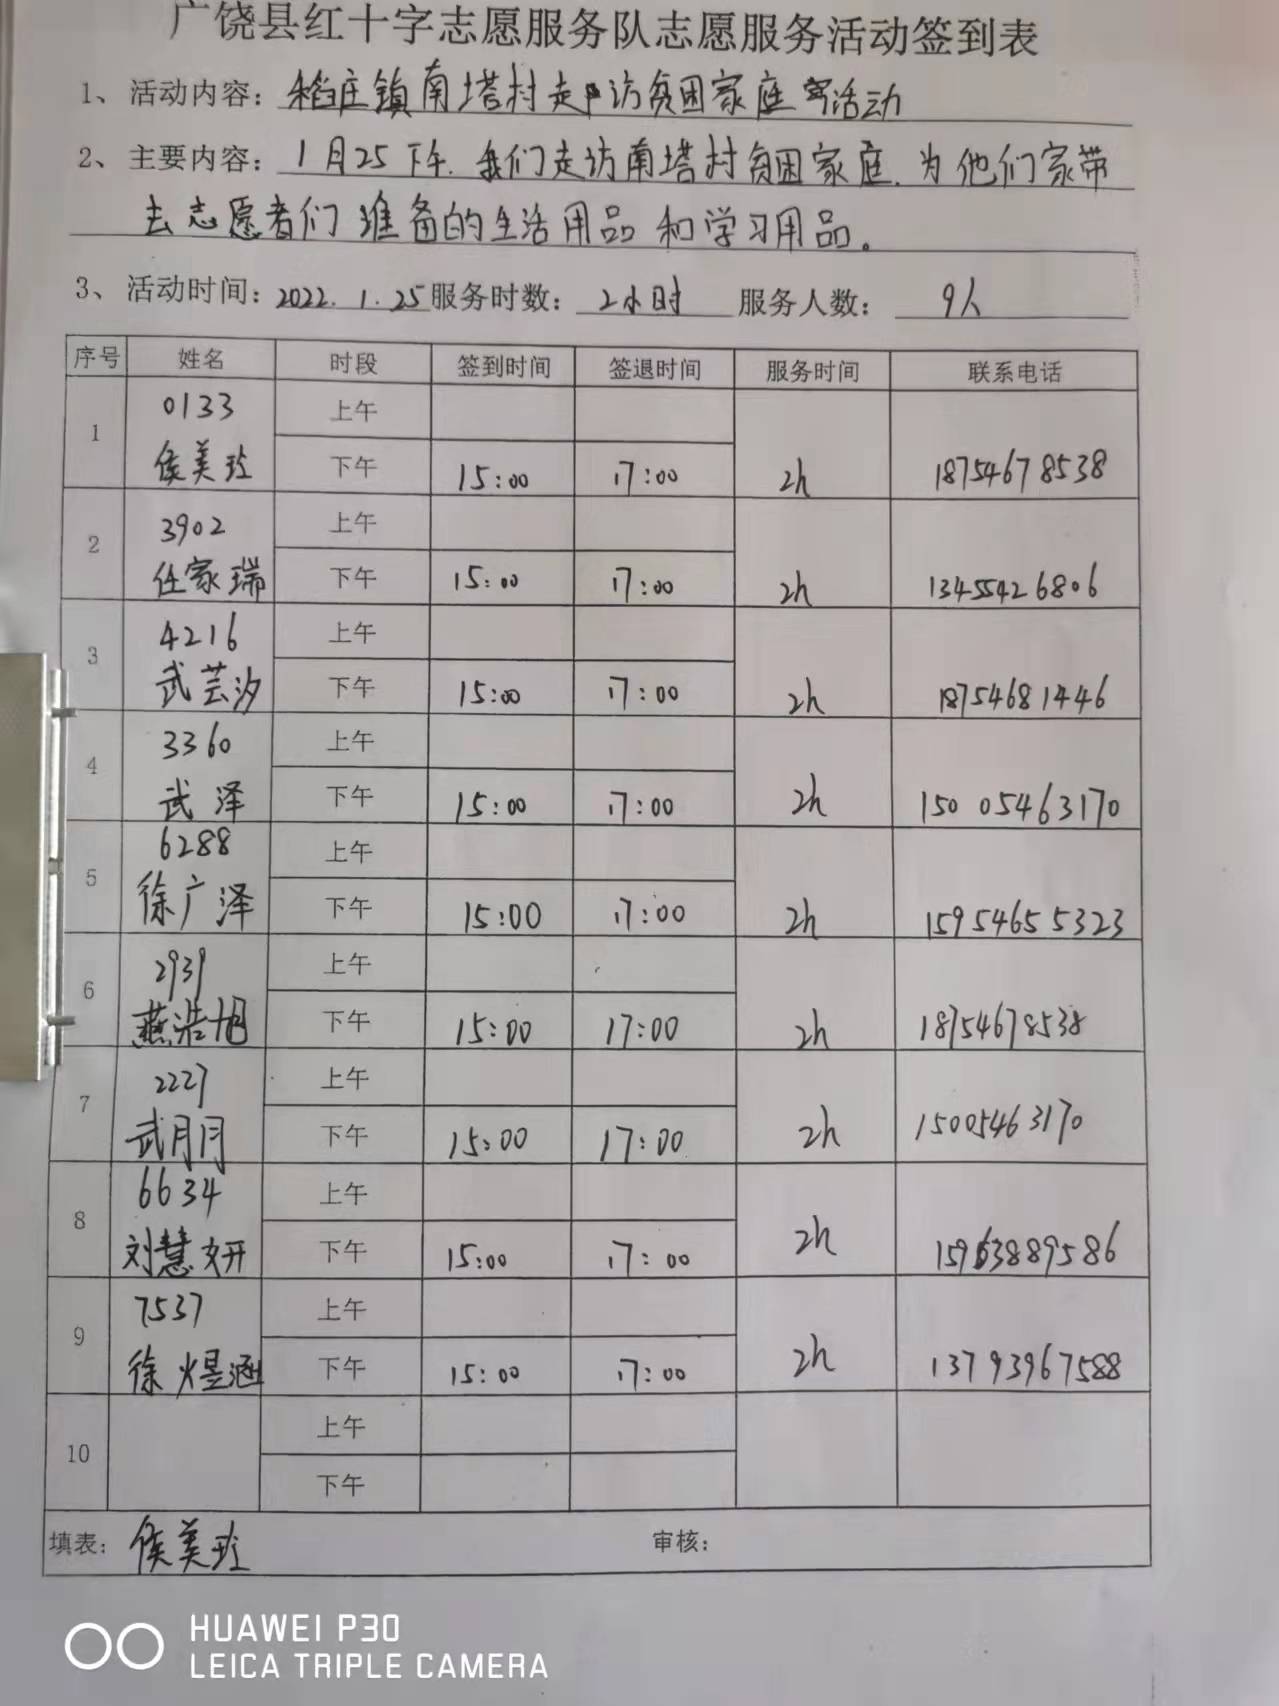 广饶县红十字志愿服务队志愿服务活动签到表
1、活动内容：稻庄镇南塔村走访贫困家庭活动
2、主要内容：1月25下午.我们走访南塔村贫困家庭.为他们家带
去志愿者们准备的生活用品和学习用品。
3、活动时间：2022.1.25服务时数：2小时 服务人数：9人
序号 姓名 时段 签到时间 签退时间 服务时间 联系电话
1 0133 上午
侯美玲 下午 15:00 17:00 2h 18754678538
2 3902 上午
任家瑞 下午 15:00 17:00 2h 13455426806
3 4216 上午
武芸汐 下午 15:00 17:00 2h 18754681446
4 3360 上午
武泽 下午 15:00 17:00 2h 150 05463170
5 6288 上午
徐广泽 下午 15:00 17:00 2h 15954655323
6 2939 上午
燕浩旭 下午 15:00 17:00 2h 18754678538
7 2227 上午
武月月 下午 15:00 17:00 2h 15005463170
8 6634 上午
刘慧妍 下午 15:00 17:00 2h 15963889586
9 7537 上午
徐煜涵 下午 15:00 17:00 2h 13793967588
10 上午
下午
填表：侯美玲 审核：
HUAWEI P30
LEICA TRIPLE CAMERA